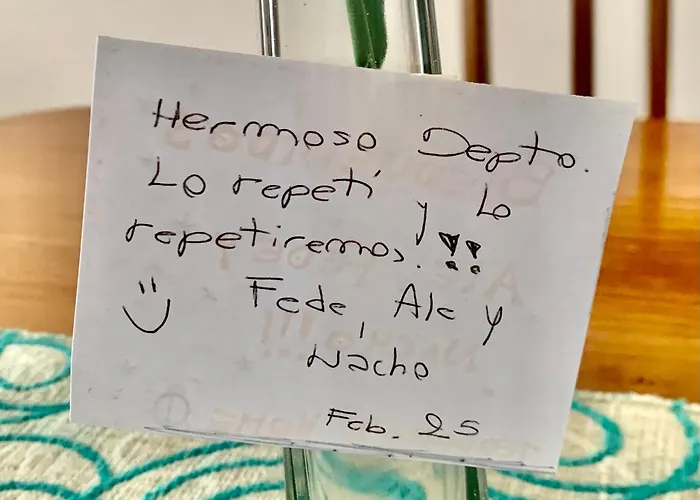 Hermoso Depto.
Lo repetí y Lo
repetiremos.!!
Fede, Ale y
Nacho
Feb. 25